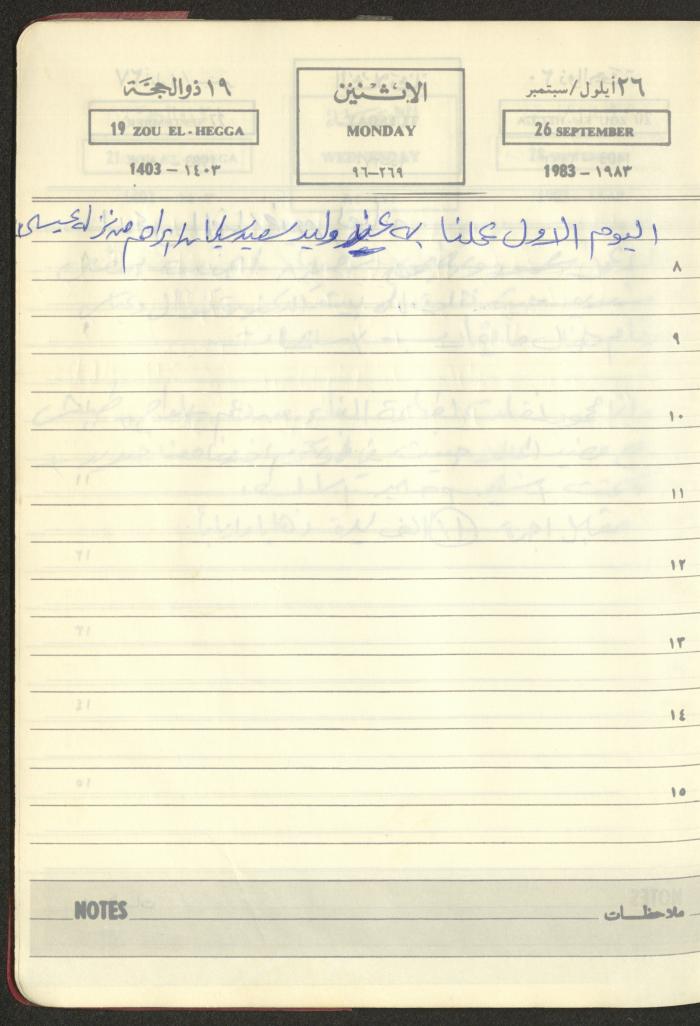 ٢٦ أيلول/سبتمبر
26 SEPTEMBER
1983 – ١٩٨٣
الاثنين
MONDAY
٩٦–٢٦٩
١٩ ذوالحجة
19 ZOU EL-HEGGA
1403 – ١٤٠٣
اليوم الاول عملنا عند وليد سعيد سليمان ابراهيم من نزلة عيسى
٨
٩
١٠
١١
١٢
١٣
١٤
١٥
ملاحظات
NOTES